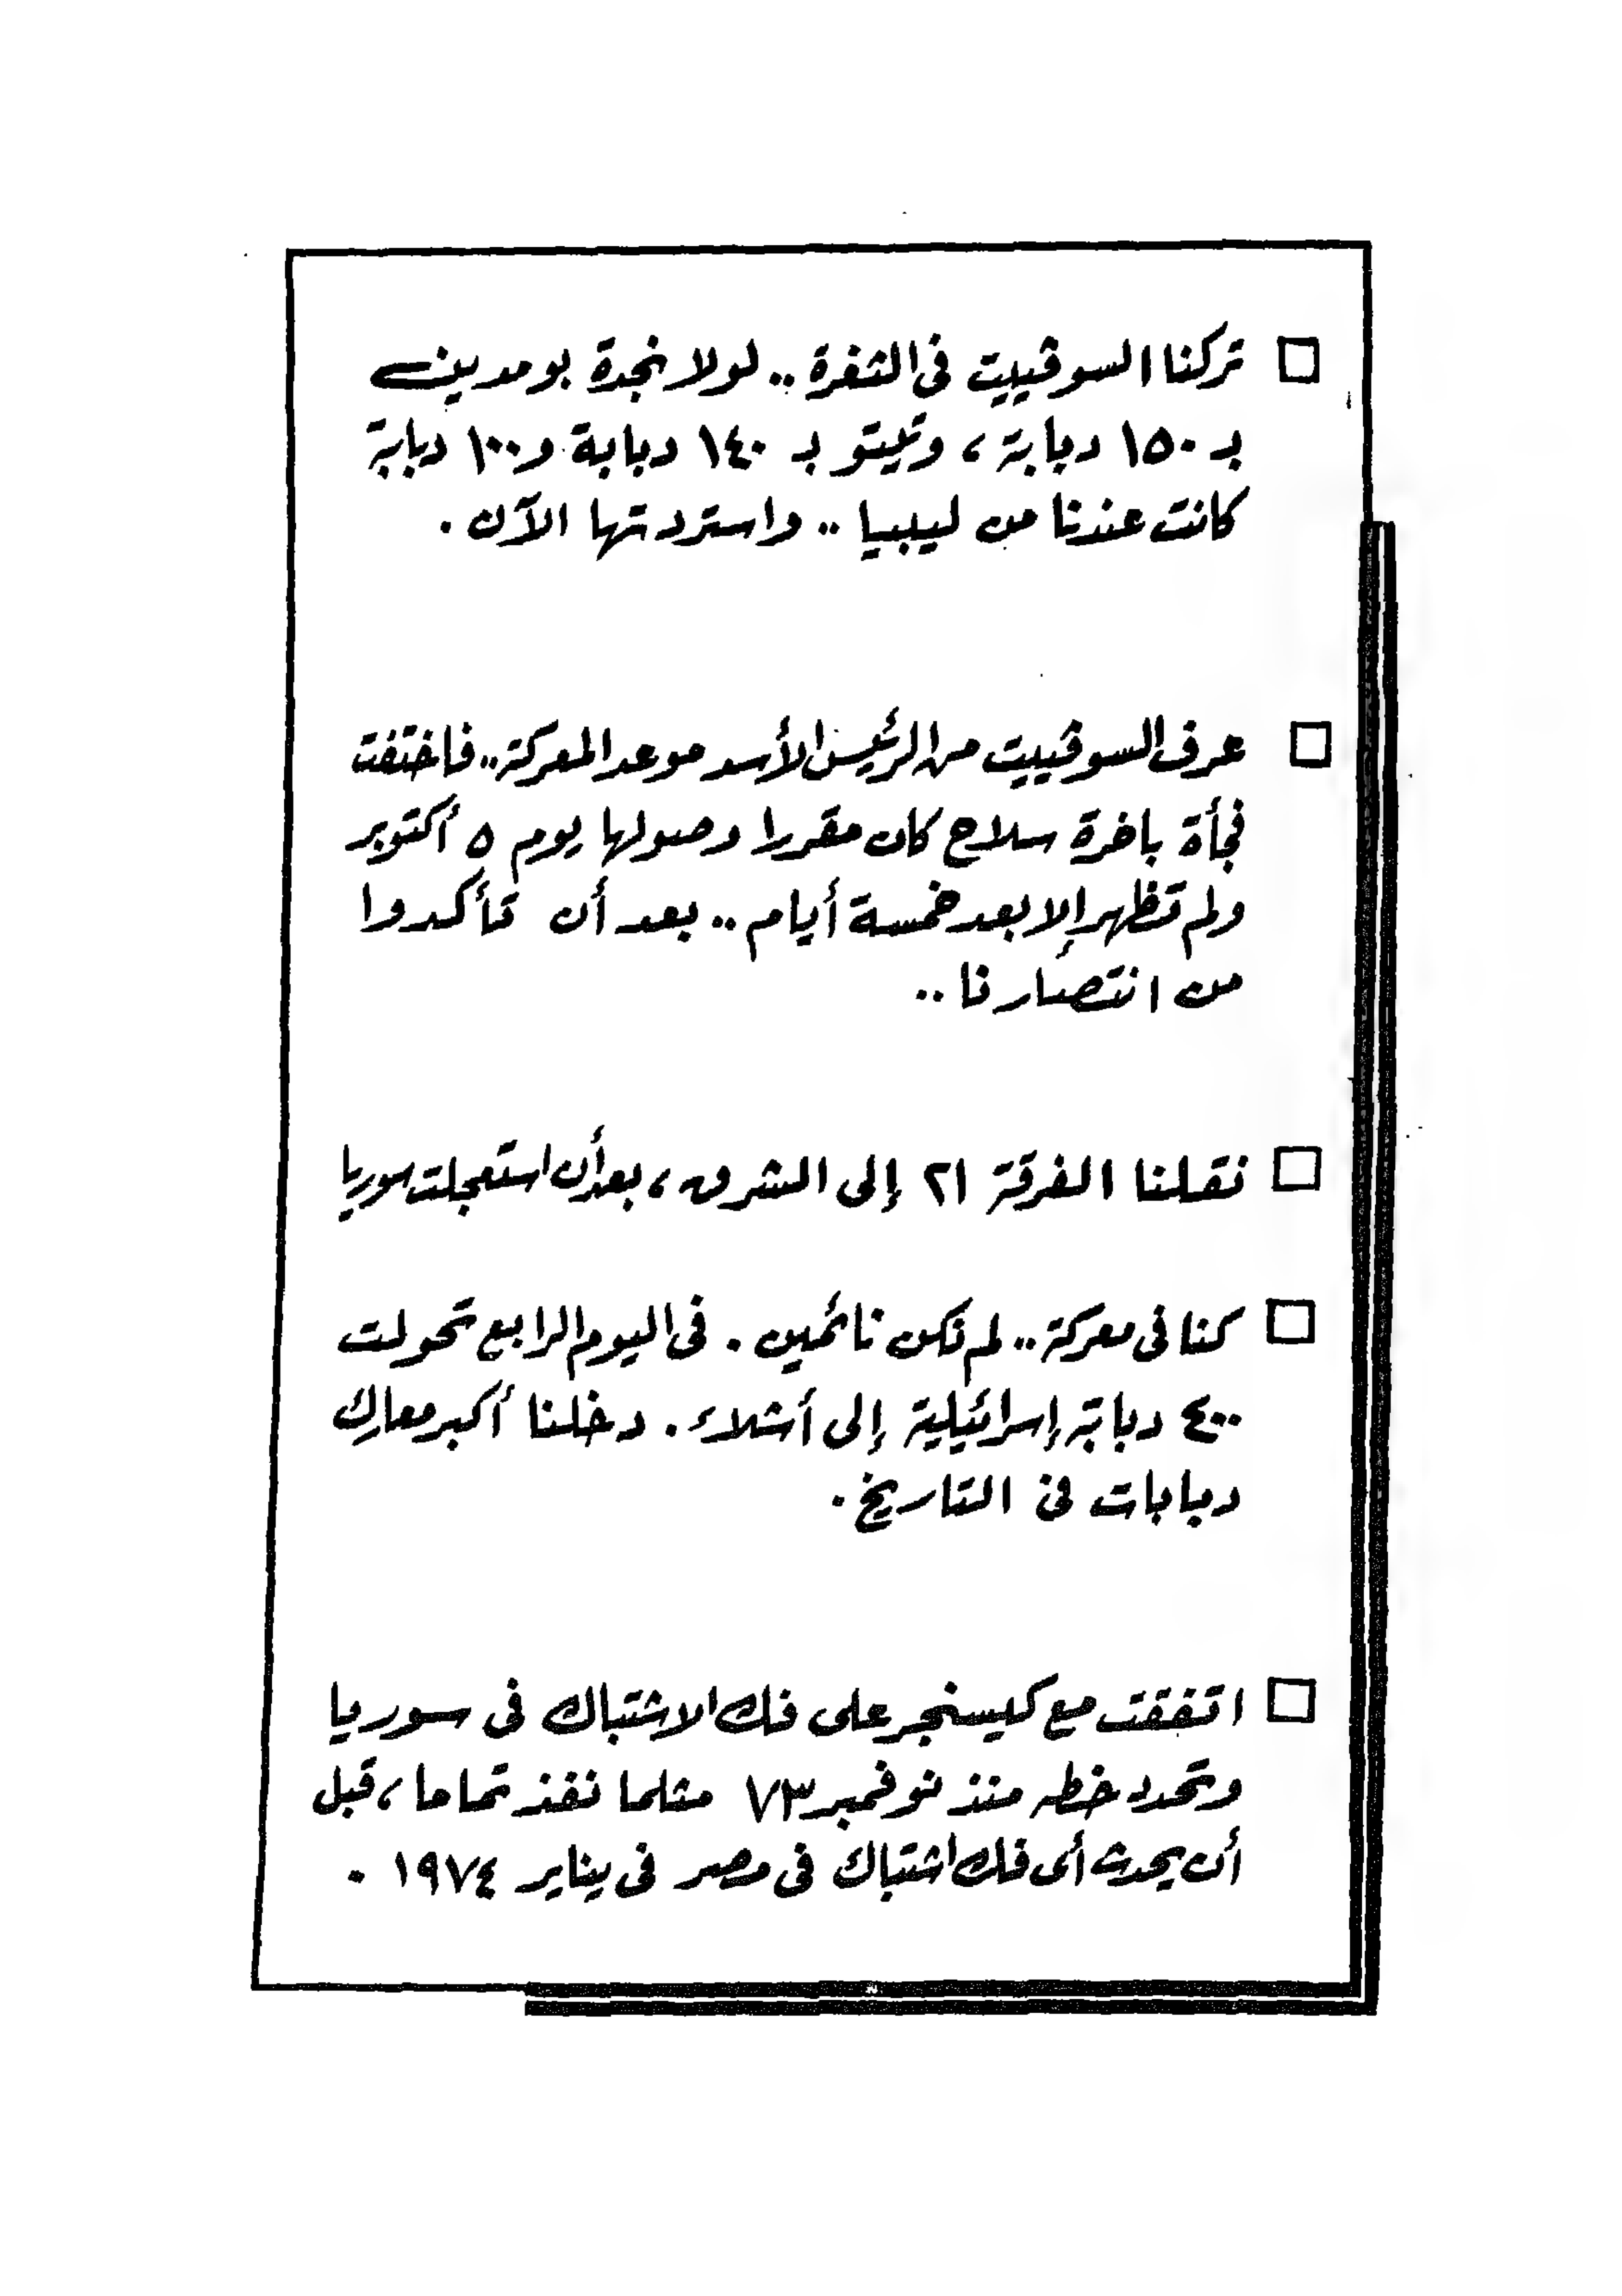 □ تركنا السوڤييت فى الثغرة .. لولا نجدة بومدين
بـ ١٥٠ دبابة ، وتيتو بـ ١٤٠ دبابة و١٠٠ دبابة
كانت عندنا من ليبيا .. واستردتها الآن .
□ عرف السوڤييت من الرئيس الأسد موعد المعركة .. فاختفت
فجأة باخرة سلاح كان مقررا وصولها يوم ٥ أكتوبر
ولم تظهر إلا بعد خمسة أيام .. بعد أن تأكدوا
من انتصارنا ..
□ نقلنا الفرقة ٢١ إلى الشرق ، بعد أن استعجلت سوريا
□ كنا فى معركة .. لم نكن نائمين . فى اليوم الرابع تحولت
٤٠٠ دبابة إسرائيلية إلى أشلاء . دخلنا أكبر معارك
دبابات فى التاريخ .
□ اتفقت مع كيسنجر على فك الاشتباك فى سوريا
وتحدد خطه منذ نوفمبر ٧٣ مثلما نفذ تماما ، قبل
أن يحدث أى فك اشتباك فى مصر فى يناير ١٩٧٤ .